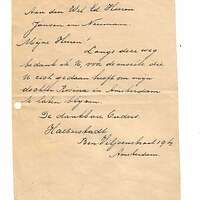 Aan den Wel Ed Heeren
Jansen en Neumann.
Mijne Heeren!
Langs deze weg
bedank ik U, voor de moeite die
U zich gedaan heeft om mijn
dochter Rosina in Amsterdam
te laten blijven.
De dankbare Ouders
Halberstadt
Ben Viljoenstraat 19
Amsterdam.